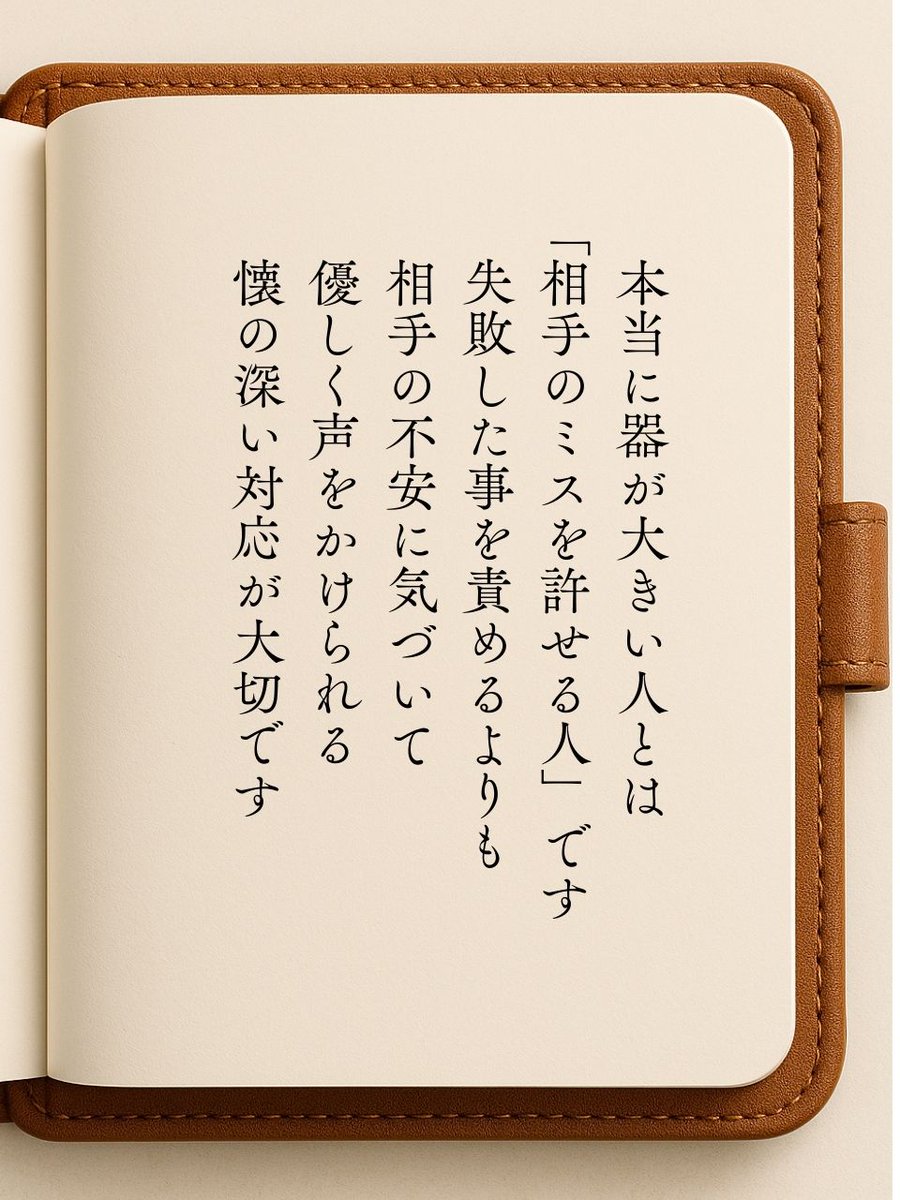 本当に器が大きい人とは
「相手のミスを許せる人」です
失敗した事を責めるよりも
相手の不安に気づいて
優しく声をかけられる
懐の深い対応が大切です